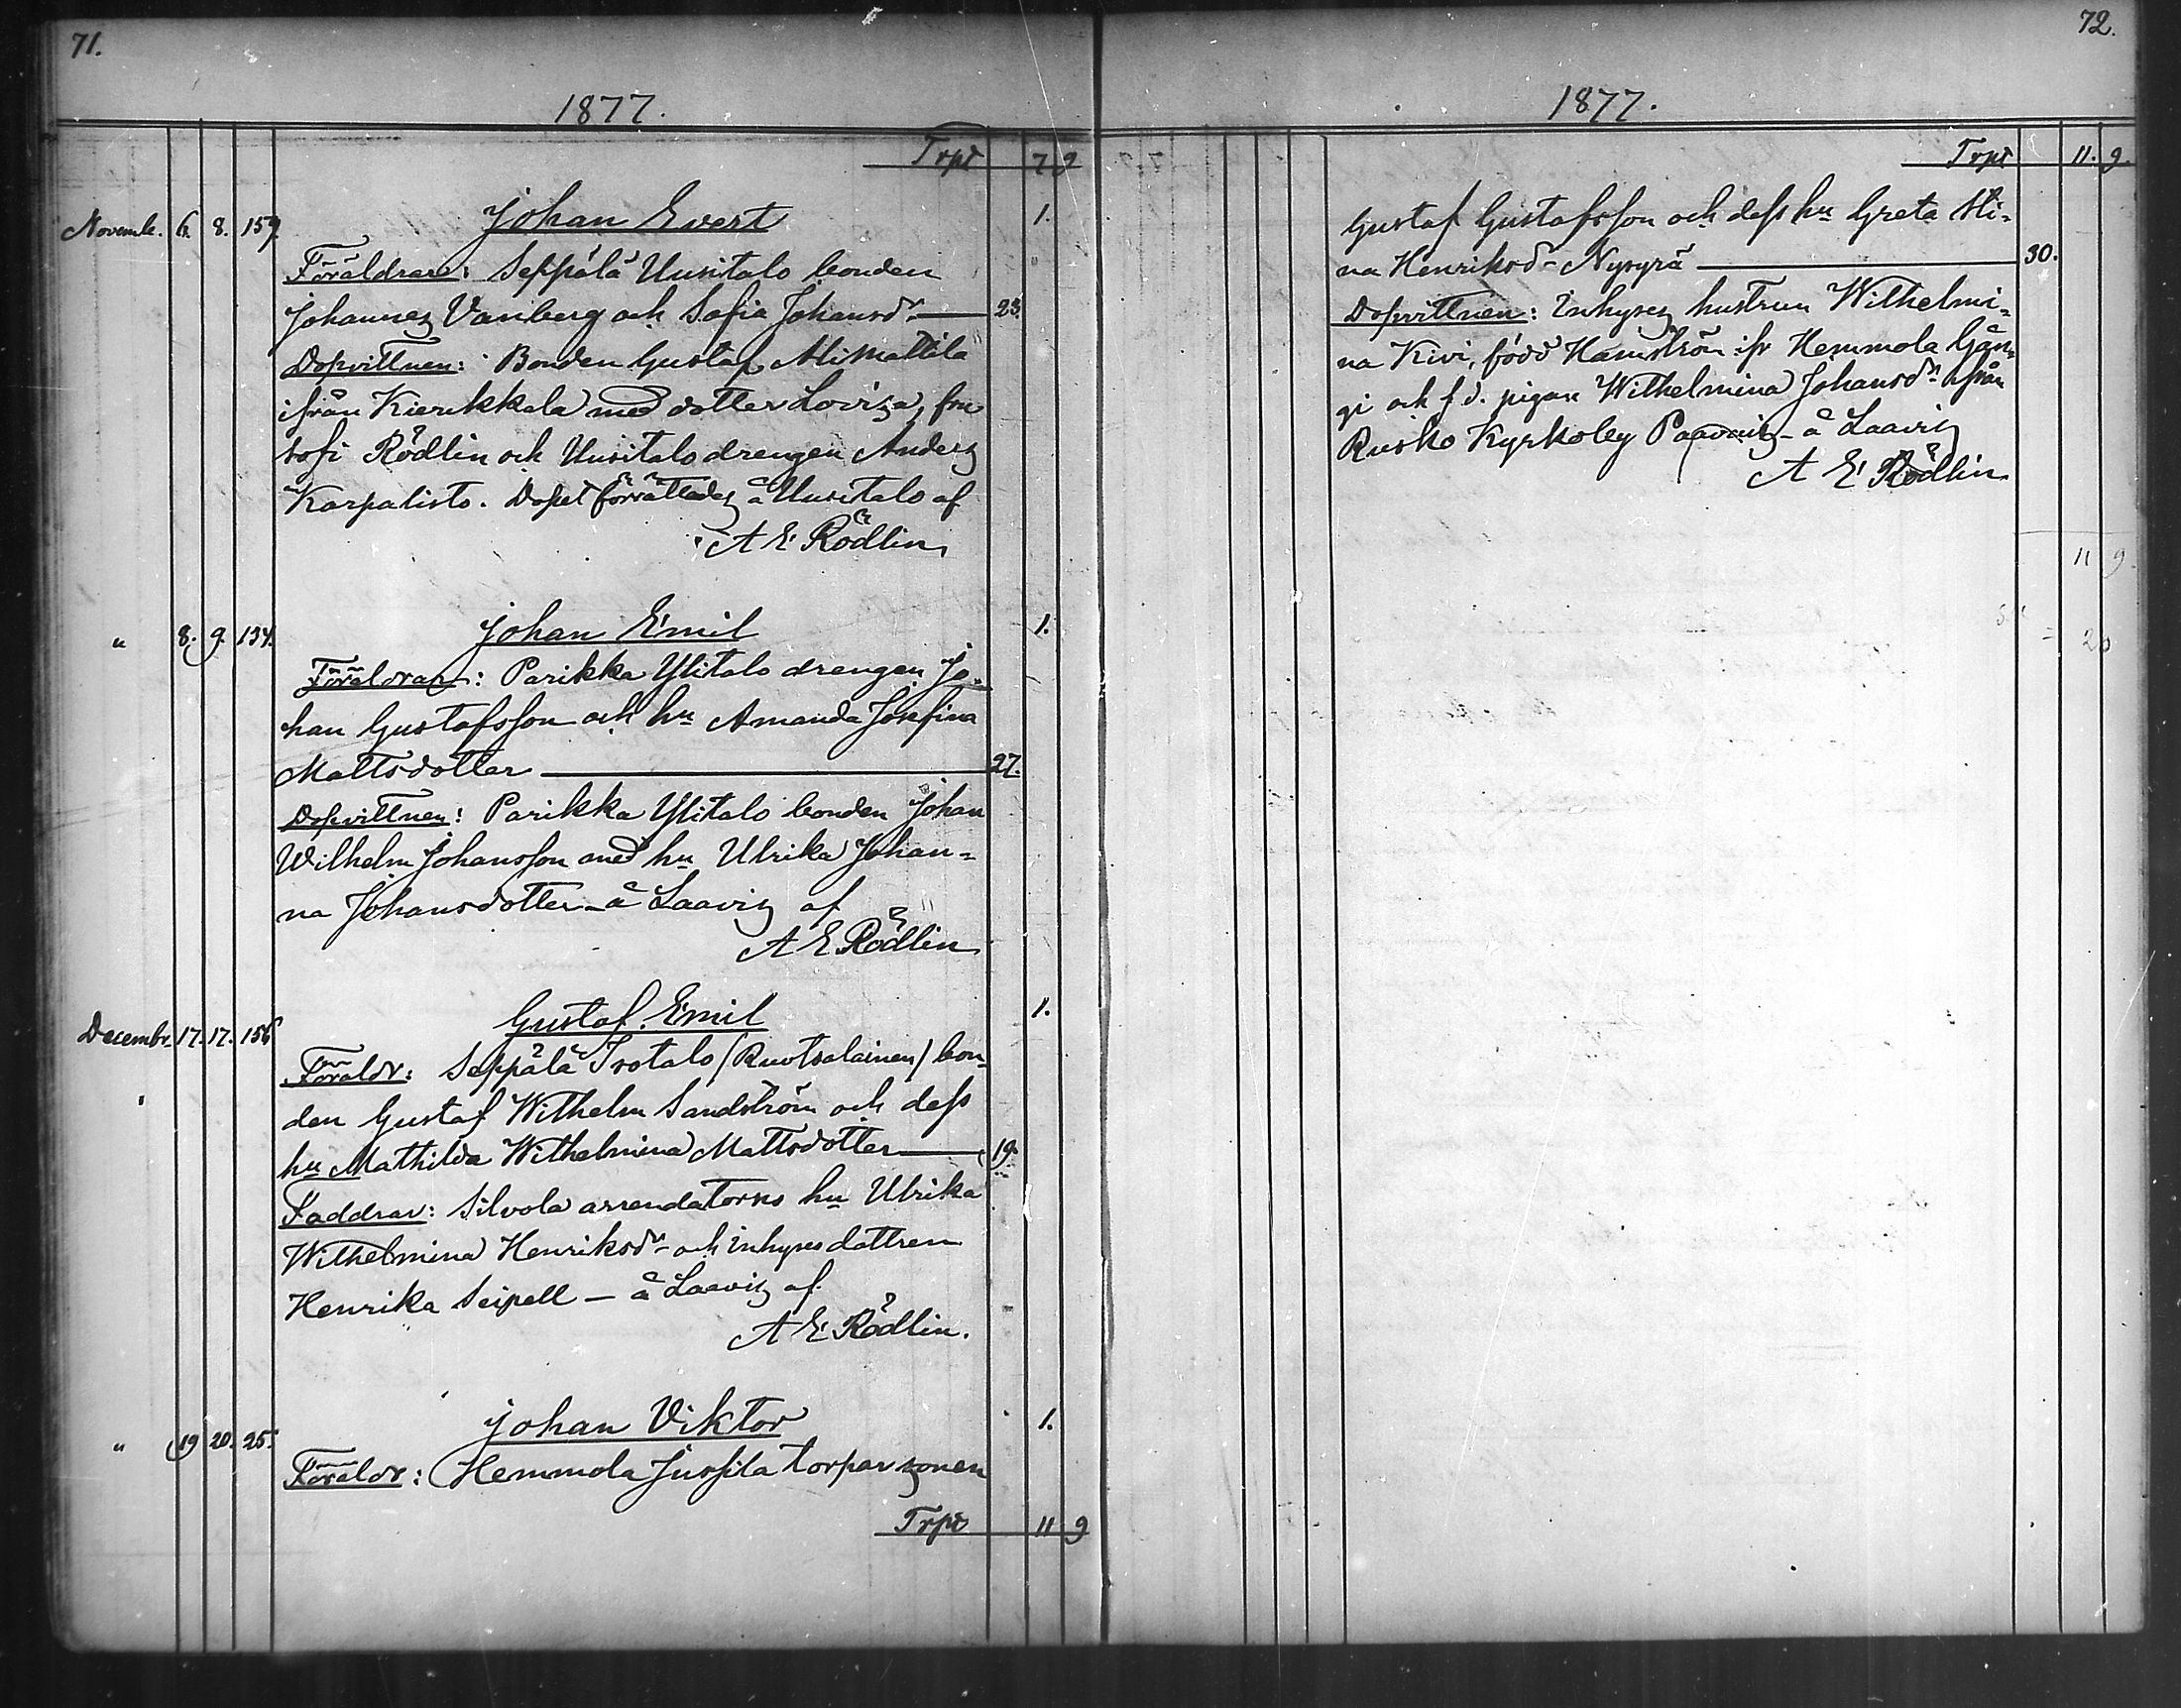 71.
1877.
Trpt 7 9
Novemb. 6. 8. 159. Johan Evert 1.
Föräldrar: Seppälä Uusitalo bonden
Johannes Vanberg och Sofia Johansdr 23.
Dopvittnen: Bonden Gustaf Ali Mattila
ifrån Kierikkala med dotter Lovisa, fru
Sofi Rödlin och Uusitalo drengen Anders
Karpalisto. Dopet förrättades å Uusitalo af
A E Rödlin
" 8. 9. 134. Johan Emil 1.
Föräldrar: Parikka Ylitalo drengen Jo-
han Gustafsson och hu Amanda Josefina
Mattsdotter 27.
Dopvittnen: Parikka Ylitalo bonden Johan
Wilhelm Johansson med hu Ulrika Johan=
na Johansdotter – å Laavis af
A E Rödlin
Decembr. 17. 17. 156 Gustaf Emil 1.
Föräldr: Seppälä Isotalo (Ruotsalainen) bon-
den Gustaf Wilhelm Sandström och dess
hu Mathilda Wilhelmina Mattsdotter 19.
Faddrar: Silvola arrendatorns hu Ulrika
Wilhelmina Henriksdr och inhyses dottren
Henrika Seipell – å Laavis af
A E Rödlin.
" 19 20. 25. Johan Viktor 1.
Föräldr: Hemmola Jussila torpar sonen
Trpt 11 9
72.
1877.
Trpt 11. 9.
Gustaf Gustafsson och dess hu Greta Sti=
na Henriksdr Nysyrä 30.
Dopvittnen: Inhyses hustrun Wilhelmi=
na Kivi, född Hamström ifr Hemmola Gån=
gi och f.d. pigan Wilhelmina Johansdr ifrån
Rusko Kyrkoby – å Laavis
A E Rödlin
11 9
= 20